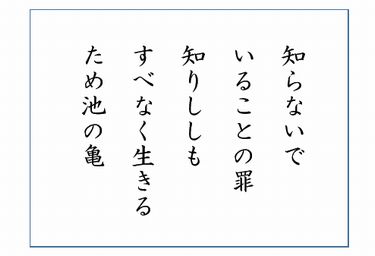 知らないで
いることの罪
知りししも
すべなく生きる
ため池の亀